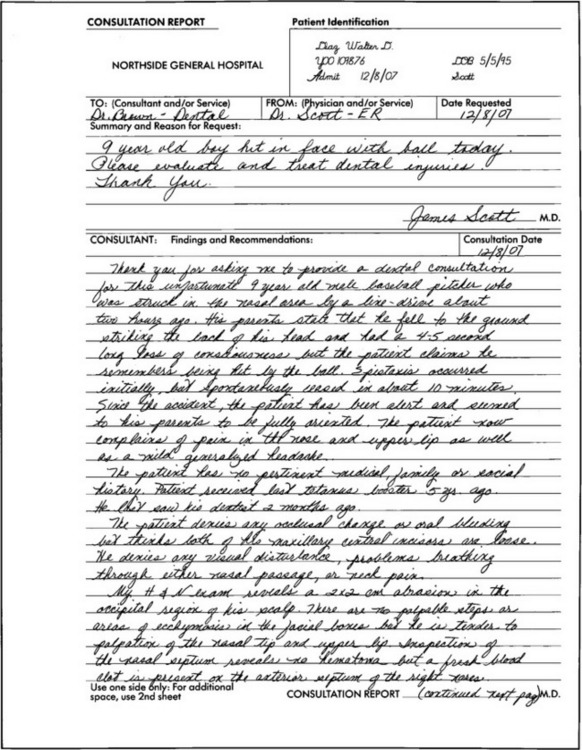 CONSULTATION REPORT
Patient Identification
Diaz, Walter D.
YDO 109876 DOB 5/5/95
Admit 12/8/07 Scott
NORTHSIDE GENERAL HOSPITAL
TO: (Consultant and/or Service) FROM: (Physician and/or Service) Date Requested
Dr. Brown - Dental Dr. Scott - ER 12/8/07
Summary and Reason for Request:
9 year old boy hit in face with ball today.
Please evaluate and treat dental injuries.
Thank You.
James Scott M.D.
CONSULTANT: Findings and Recommendations: Consultation Date
12/8/07
Thank you for asking me to provide a dental consultation
for this unfortunate 9 year old male baseball pitcher who
was struck in the nasal area by a line-drive about
two hours ago. His parents state that he fell to the ground
striking the back of his head and had a 4-5 second
long loss of conshousness but the patient claims he
remembers being hit by the ball. Epistaxis occurred
initially, but spontaneously ceased in about 10 minutes.
Since the accident, the patient has been alert and seemed
to his parents to be fully oriented. The patient now
complains of pain in the nose and upper lip as well
as a mild generalized headache.
The patient has no pertinent medical, family or social
history. Patient received last tetanus booster 5 yr. ago.
He last saw his dentist 2 months ago.
The patient denies any occlusal change or oral bleeding
but thinks both of his maxillary central incisors are loose.
He denies any visual disturbance, problems breathing
through either nasal passage, or neck pain.
My H & N exam reveals a 2x2 cm abrasion in the
occipital region of his scalp. There are no palpable steps or
areas of ecchymosis in the facial bones but he is tender to
palpation of the nasal tip and upper lip. Inspection of
the nasal septum reveals no hematoma but a fresh blood
clot is present on the anterior septum of the right nares.
Use one side only: For additional
space, use 2nd sheet CONSULTATION REPORT (continued next pag) M.D.